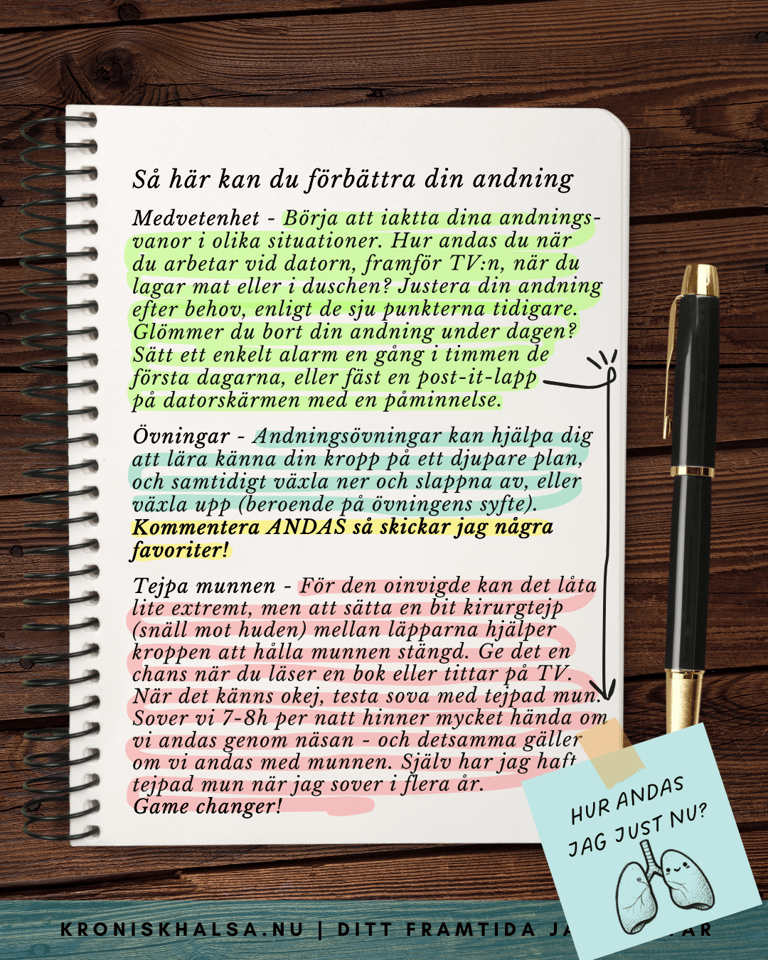 Så här kan du förbättra din andning
Medvetenhet - Börja att iaktta dina andnings-
vanor i olika situationer. Hur andas du när
du arbetar vid datorn, framför TV:n, när du
lagar mat eller i duschen? Justera din andning
efter behov, enligt de sju punkterna tidigare.
Glömmer du bort din andning under dagen?
Sätt ett enkelt alarm en gång i timmen de
första dagarna, eller fäst en post-it-lapp
på datorskärmen med en påminnelse.
Övningar - Andningsövningar kan hjälpa dig
att lära känna din kropp på ett djupare plan,
och samtidigt växla ner och slappna av, eller
växla upp (beroende på övningens syfte).
Kommentera ANDAS så skickar jag några
favoriter!
Tejpa munnen - För den oinvigde kan det låta
lite extremt, men att sätta en bit kirurgtejp
(snäll mot huden) mellan läpparna hjälper
kroppen att hålla munnen stängd. Ge det en
chans när du läser en bok eller tittar på TV.
När det känns okej, testa sova med tejpad mun.
Sover vi 7-8h per natt hinner mycket hända om
vi andas genom näsan - och detsamma gäller
om vi andas med munnen. Själv har jag haft
tejpad mun när jag sover i flera år.
Game changer!
HUR ANDAS
JAG JUST NU?
KRONISKHALSA.NU | DITT FRAMTIDA